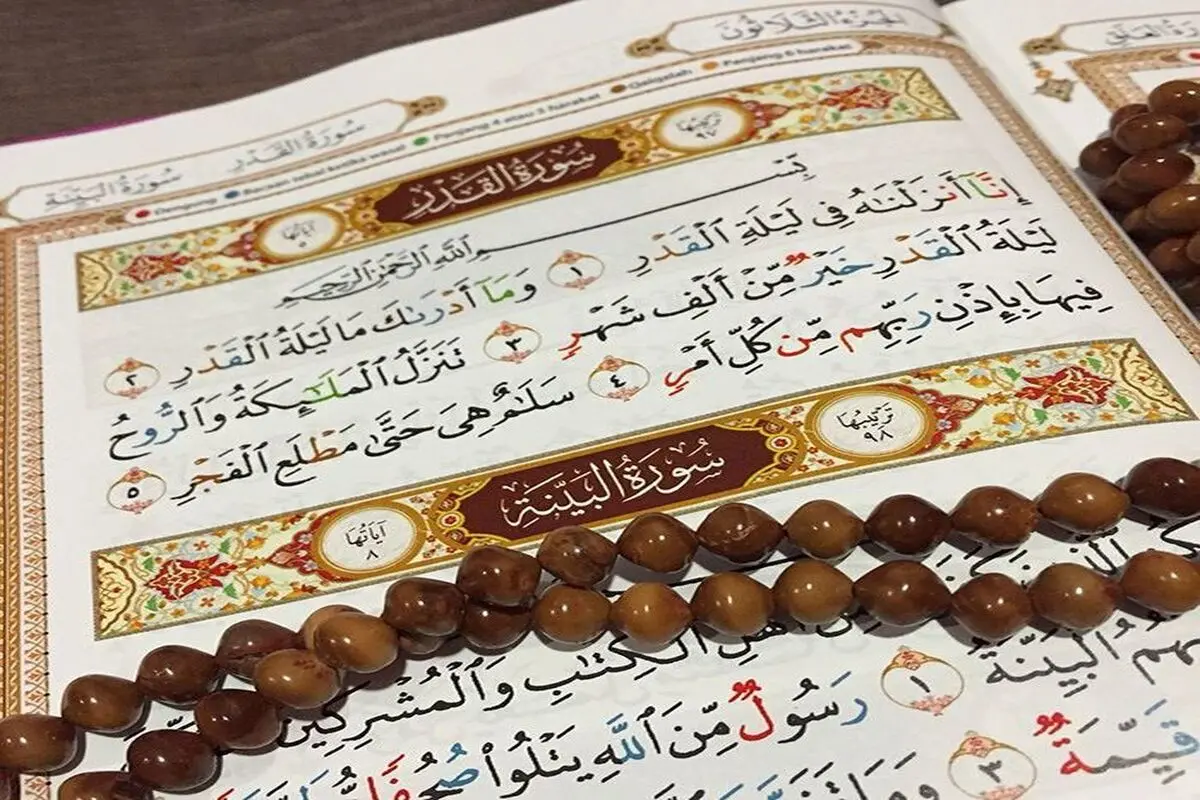 الجُزْءُ الثَّلَاثُونَ
سُورَةُ القَدْرِ سُورَةُ البَيِّنَةِ
Dengung Bacaan tebal ketika wasal Panjang 4 atau 5 harakat Qalqalah Panjang 6 harakat
سُورَةُ العَلَقِ
تَرْتِيبُهَا ٩٧ سُورَةُ القَدْرِ آيَاتُهَا
بِسْمِ ٱللَّهِ ٱلرَّحْمَٰنِ ٱلرَّحِيمِ
إِنَّآ أَنزَلْنَٰهُ فِى لَيْلَةِ ٱلْقَدْرِ ١ وَمَآ أَدْرَىٰكَ مَا لَيْلَةُ ٱلْقَدْرِ ٢
لَيْلَةُ ٱلْقَدْرِ خَيْرٌ مِّنْ أَلْفِ شَهْرٍ ٣ تَنَزَّلُ ٱلْمَلَٰٓئِكَةُ وَٱلرُّوحُ
فِيهَا بِإِذْنِ رَبِّهِم مِّن كُلِّ أَمْرٍ ٤ سَلَٰمٌ هِىَ حَتَّىٰ مَطْلَعِ ٱلْفَجْرِ ٥
تَرْتِيبُهَا ٩٨ سُورَةُ البَيِّنَةِ آيَاتُهَا ٨
ٱلْكِتَٰبِ وَٱلْمُشْرِكِينَ
ٱلْبَيِّنَةُ ١ رَسُولٌ مِّنَ ٱللَّهِ يَتْلُوا۟ صُحُفًا
قَيِّمَةٌ ٣ وَمَا